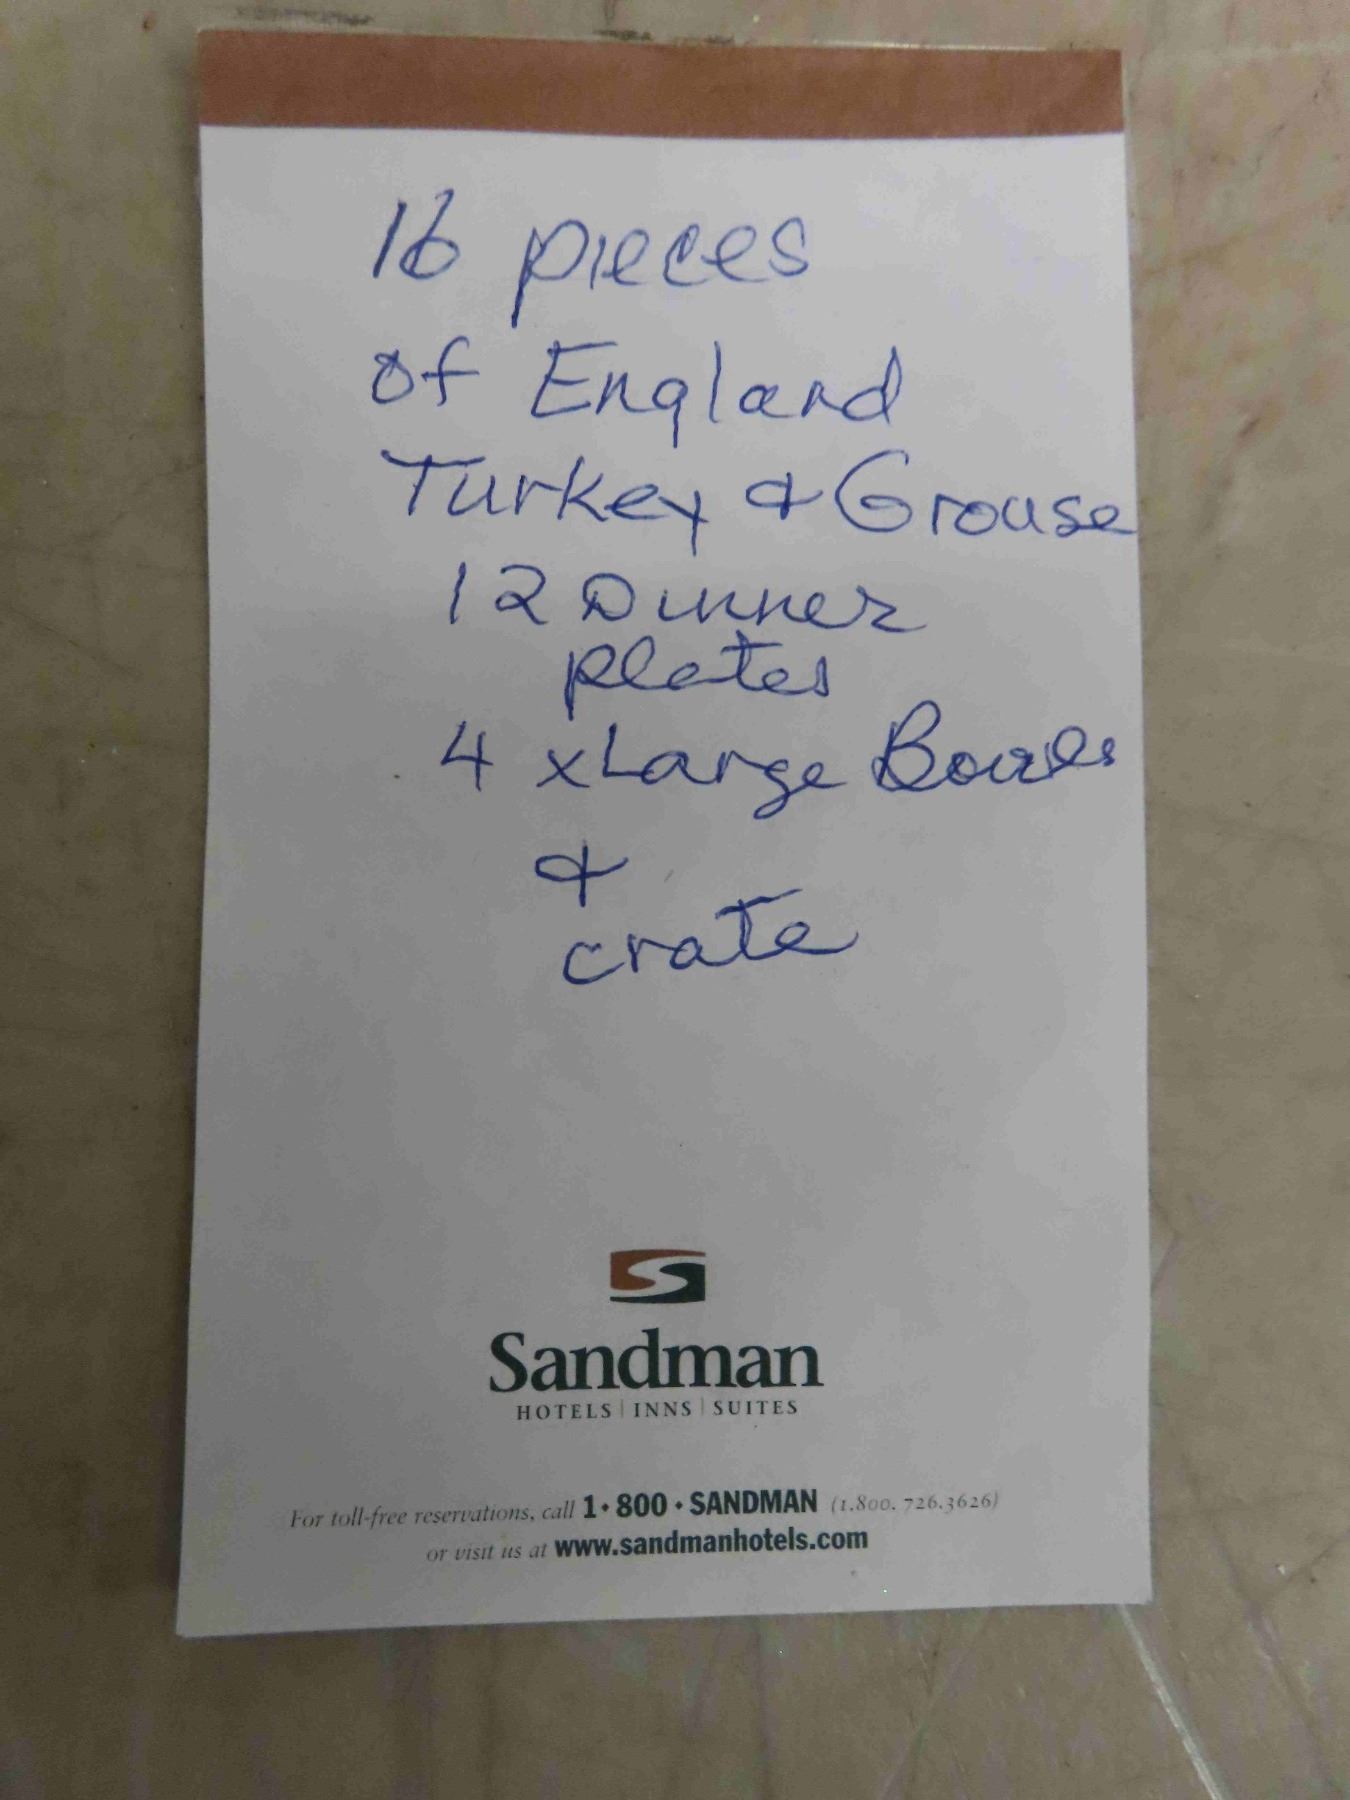 16 pieces
of England
Turkey & Grouse
12 Dinner
plates
4 xLarge Bowls
&
crate
Sandman
HOTELS | INNS | SUITES
For toll-free reservations, call 1•800•SANDMAN (1.800.726.3626)
or visit us at www.sandmanhotels.com